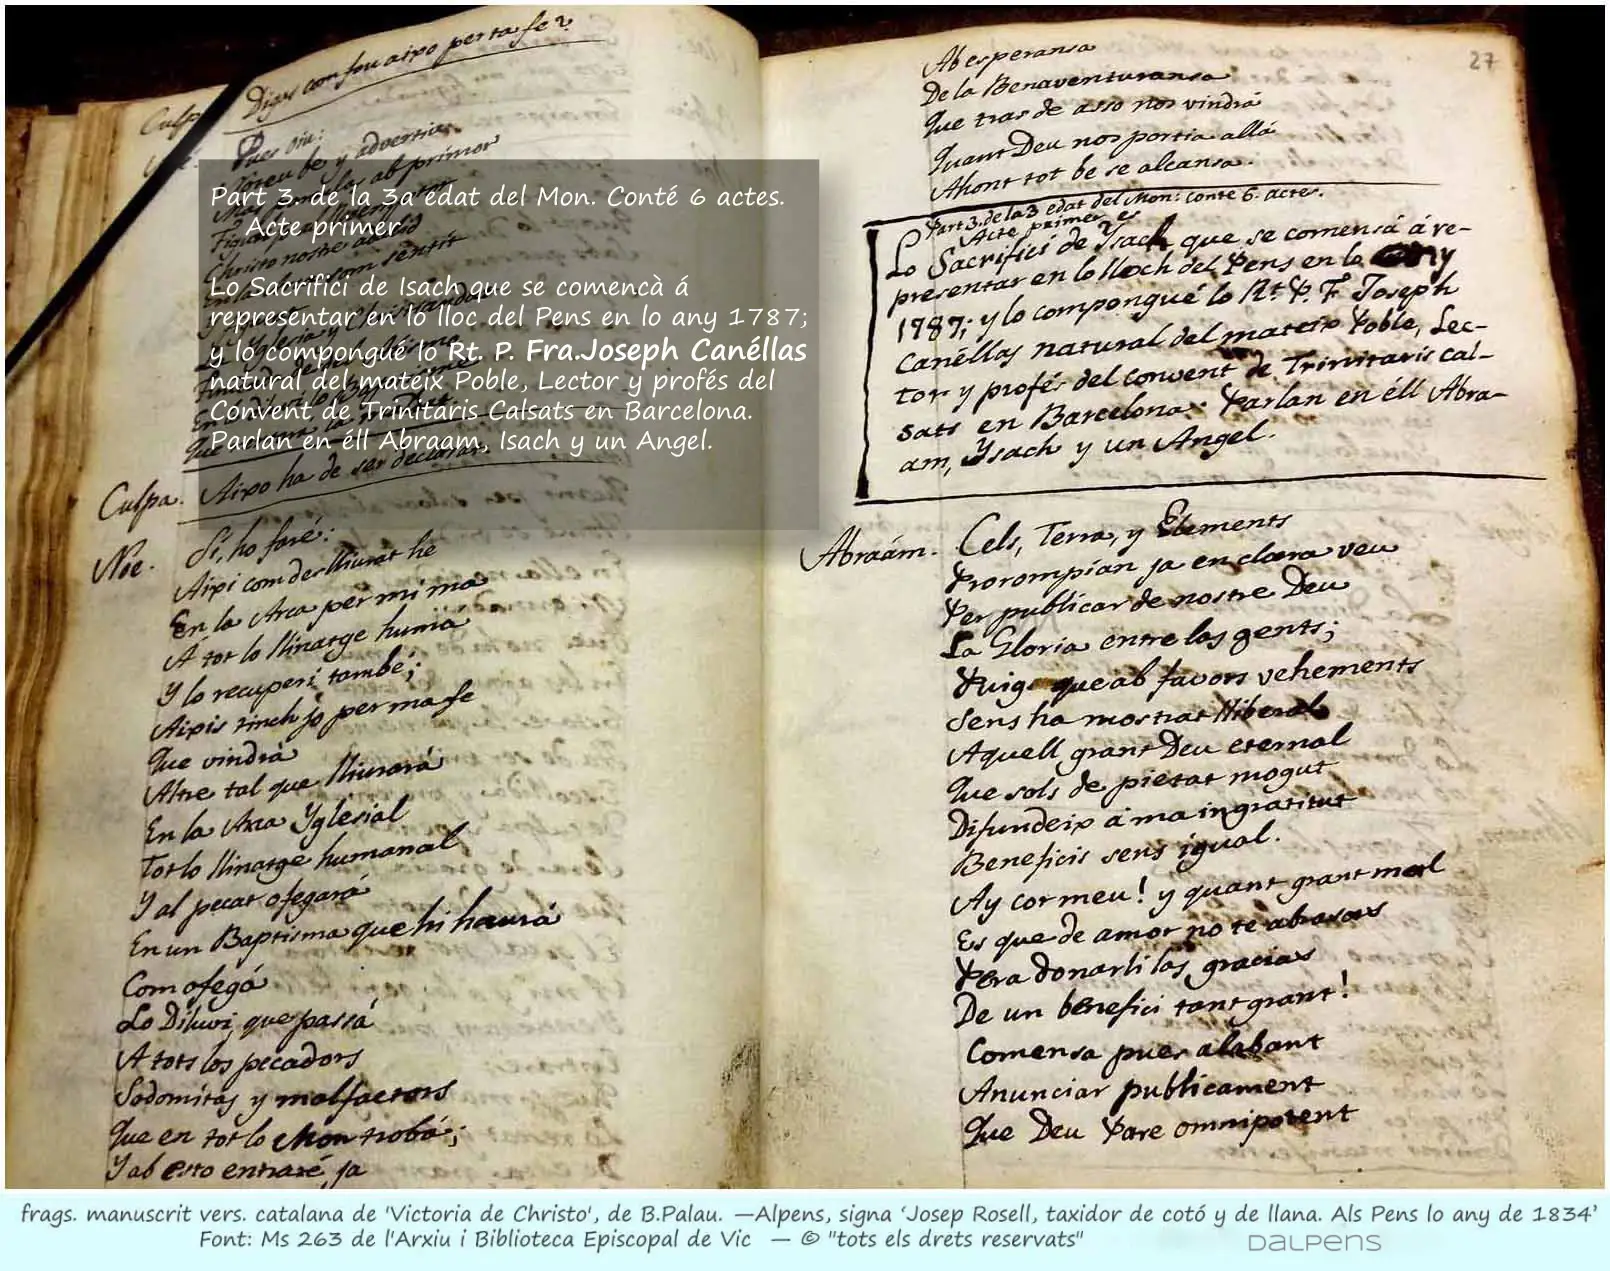 Digas com fou axo per ta fe?
Culp
Pues oiu:
Noteu be y advertiu
ab primor
Christo nostre
sentit
Que
Culpa. Aixo ha de ser declarar.
Noe. Si, ho faré:
Aixi com deslliurat he
En la Arca per mi ma
A tot lo llinatge humá
Y lo recuperi també;
Aixis tinch jo per ma fe
Que vindrá
Altre tal que lliurará
En la Arca Yglesial
Tot lo llinatge humanal
Y al pecat ofegará
En un Baptisma que hi haurá
Com ofegá
Lo Diluvi que passá
A tots los pecadors
Sodomitas y malfactors
Que en tot lo Mon trobá;
Y ab esto entraré ja
Part 3. de la 3a edat del Mon. Conté 6 actes.
Acte primer
Lo Sacrifici de Isach que se comencà á
representar en lo lloc del Pens en lo any 1787;
y lo compongué lo Rt. P. Fra.Joseph Canéllas
natural del mateix Poble, Lector y profés del
Convent de Trinitaris Calsats en Barcelona.
Parlan en éll Abraam, Isach y un Angel.
27
Ab esperansa
De la Benaventuransa
Que tras de asso nos vindrá
Quant Deu nos portia allá
Ahont tot be se alcansa.
Part 3. de la 3 edat del Mon: conte 6. actes.
Acte primer, es
Lo Sacrifici de Ysach que se comensá á re-
presentar en lo lloch del Pens en lo any
1787; y lo compongué lo Rt. P. F. Joseph
Canéllas natural del mateix Poble, Lec-
tor y profés del convent de Trinitaris cal-
sats en Barcelona. Parlan en éll Abra-
am, Ysach y un Angel.
Abraám. Cels, Terra, y Elements
Prorompian ja en clara veu
Per publicar de nostre Deu
La Gloria entre las gents;
Puig que ab favors vehements
Sens ha mostrat lliberal
Aquell grant Deu eternal
Que sols de pietat mogut
Difundeix á ma ingratitut
Beneficis sens igual.
Ay cor meu! y quant grant mal
Es que de amor no te abrasas
Pera donarli las gracias
De un benefici tant grant!
Comensa pues alabant
Anunciar publicament
Que Deu Pare omnipotent
frags. manuscrit vers. catalana de 'Victoria de Christo', de B.Palau. —Alpens, signa ‘Josep Rosell, taxidor de cotó y de llana. Als Pens lo any de 1834’
Font: Ms 263 de l'Arxiu i Biblioteca Episcopal de Vic — © "tots els drets reservats"
DALPENS